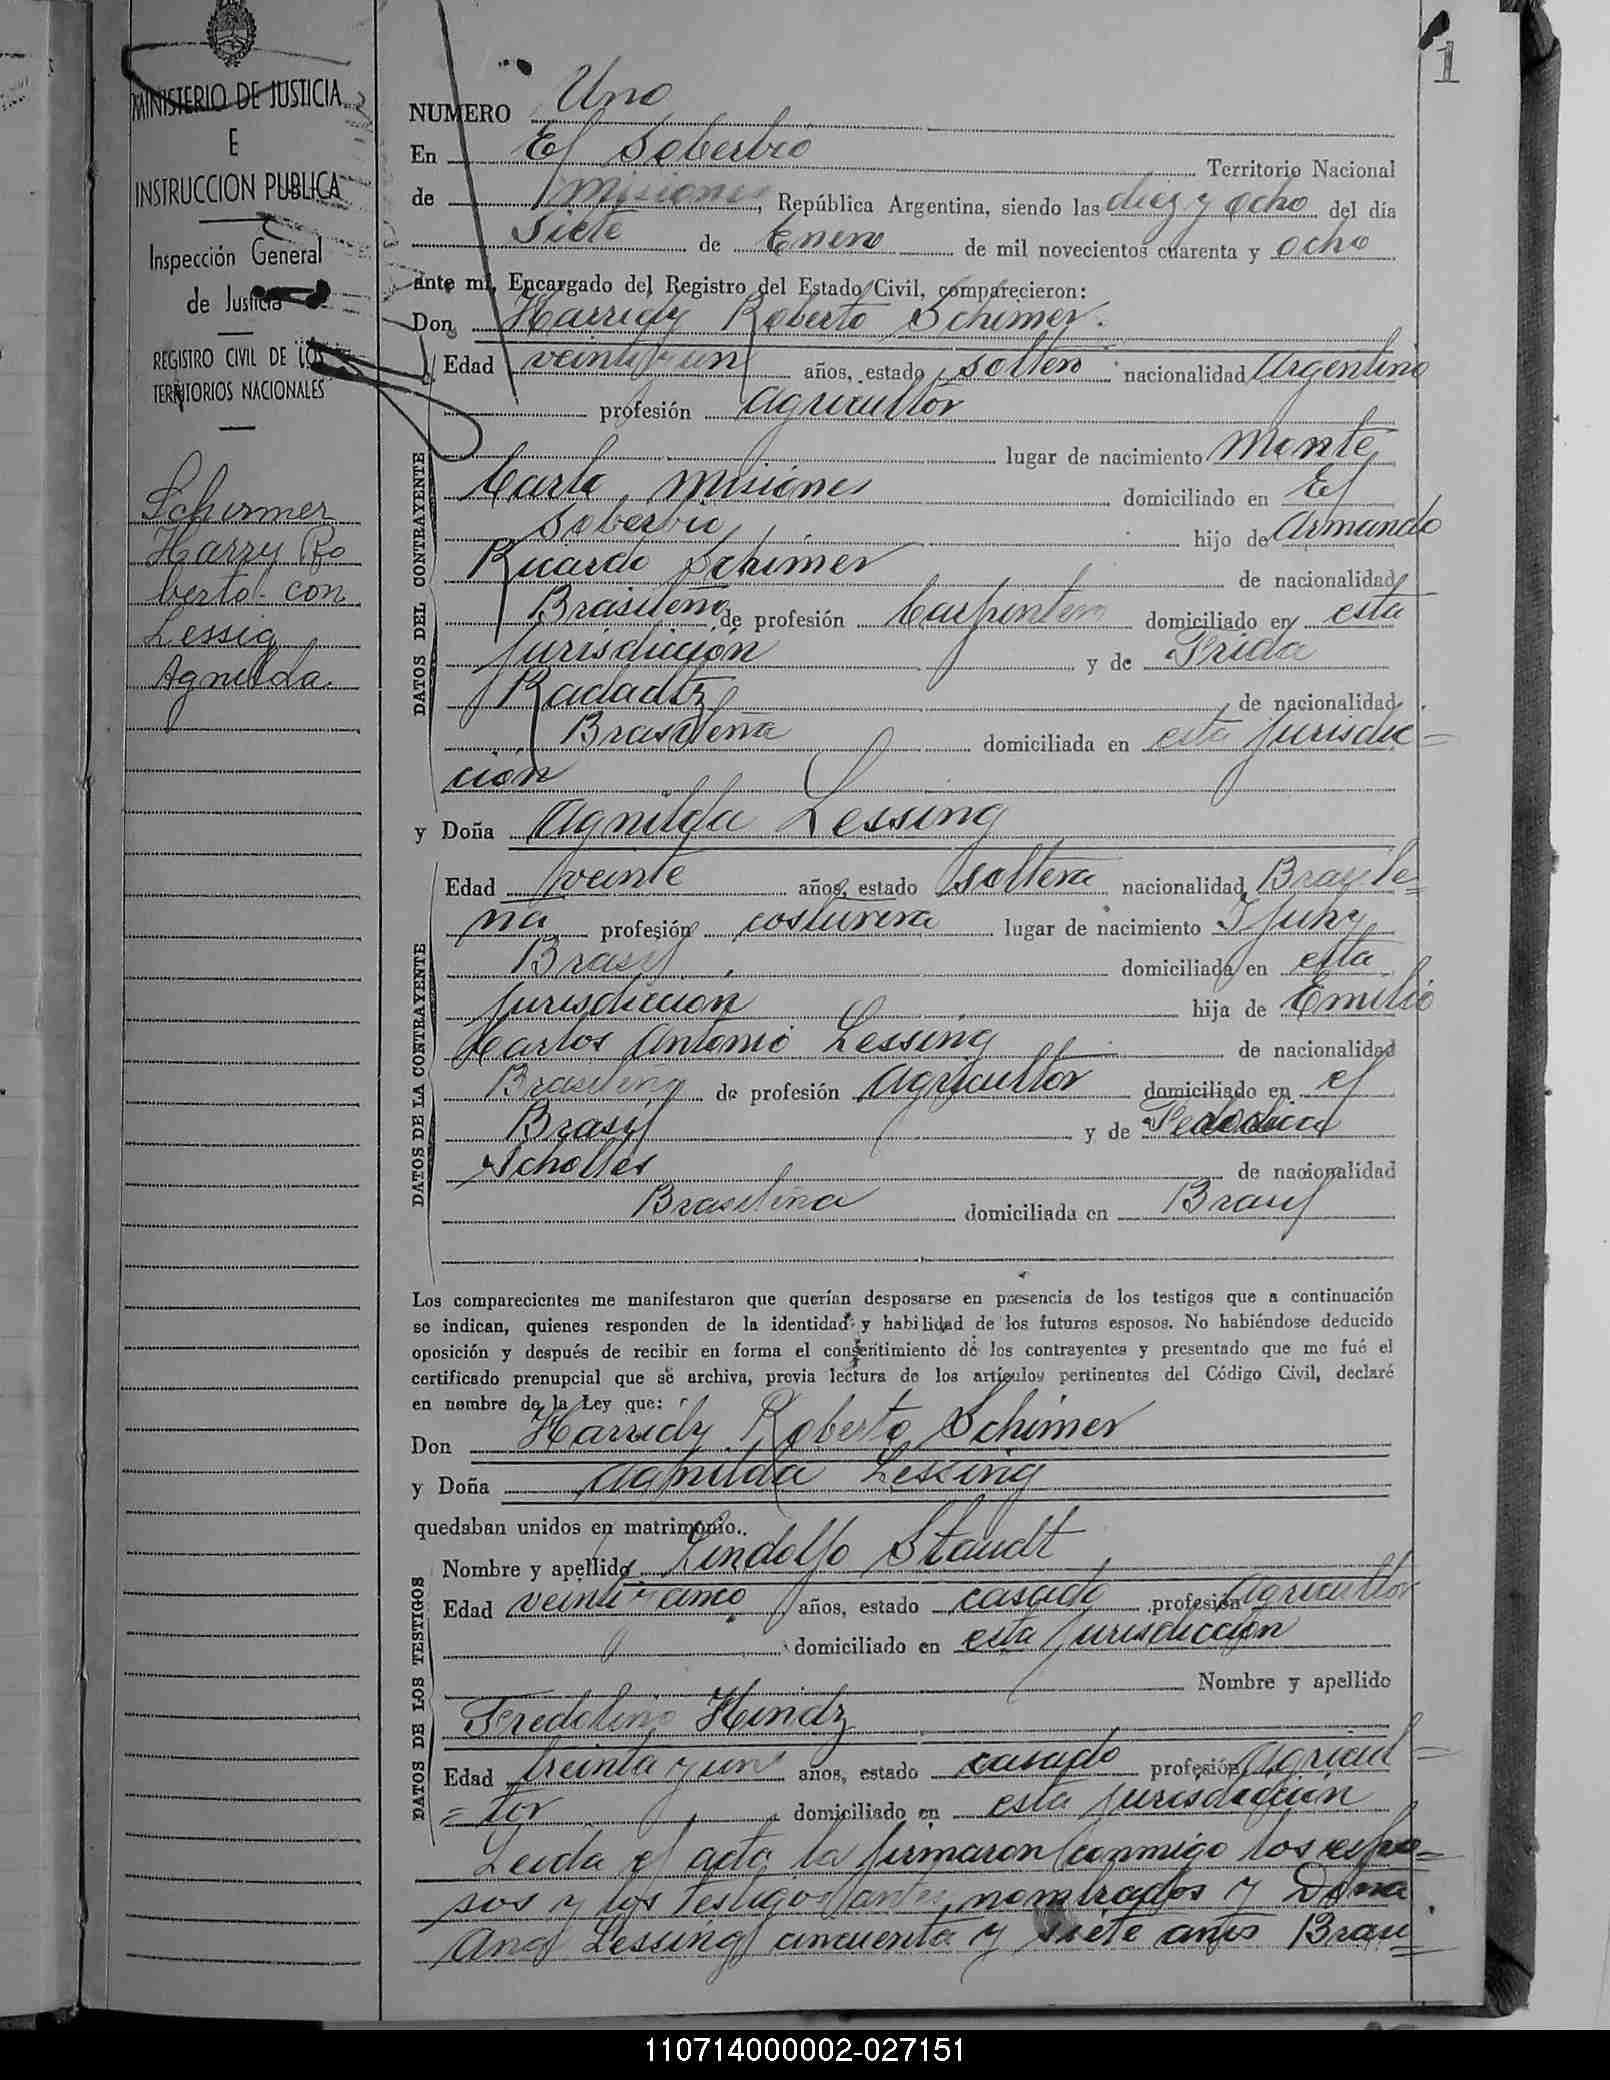 1
MINISTERIO DE JUSTICIA
E
INSTRUCCION PUBLICA
Inspección General
de Justicia
REGISTRO CIVIL DE LOS
TERRITORIOS NACIONALES
Schirmer
Harry Ro
berto - con
Lessig
Agnilda.
NUMERO Uno
En El Soberbio Territorio Nacional
de Misiones, República Argentina, siendo las diez y ocho del día
Siete de Enero de mil novecientos cuarenta y ocho
ante mí, Encargado del Registro del Estado Civil, comparecieron:
Don Harridy Roberto Schimer.
DATOS DEL CONTRAYENTE
Edad veinti y un años, estado soltero nacionalidad Argentino
profesión Agricultor
lugar de nacimiento Monte
Carlo Misiones domiciliado en El
Soberbio hijo de Armando
Ricardo Schimer de nacionalidad
Brasileño de profesión Carpintero domiciliado en esta
jurisdicción y de Frida
Radadtz de nacionalidad
Brasileña domiciliada en esta jurisdic=
ción
y Doña Agnilda Lessing
DATOS DE LA CONTRAYENTE
Edad veinte años, estado soltera nacionalidad Brasile=
ña profesión costurera lugar de nacimiento Ijuhy
Brasil domiciliada en esta
jurisdiccion hija de Emilio
Carlos Antonio Lessing de nacionalidad
Brasileño de profesión Agricultor domiciliado en el
Brasil y de
Scholles de nacionalidad
Brasileña domiciliada en Brasil
Los comparecientes me manifestaron que querían desposarse en presencia de los testigos que a continuación
se indican, quienes responden de la identidad y habilidad de los futuros esposos. No habiéndose deducido
oposición y después de recibir en forma el consentimiento de los contrayentes y presentado que me fué el
certificado prenupcial que se archiva, previa lectura de los artículos pertinentes del Código Civil, declaré
en nombre de la Ley que:
Don Harridy Roberto Schimer
y Doña Agnilda Lessing
quedaban unidos en matrimonio.
DATOS DE LOS TESTIGOS
Nombre y apellido Lindolfo Staudt
Edad veinticinco años, estado casado profesión Agricultor
domiciliado en esta jurisdiccion
Nombre y apellido
Fredolino Hindz
Edad treinta y uno años, estado casado profesión Agricul=
=tor domiciliado en esta jurisdicción
Leida el acta la firmaron conmigo los espo=
sos y los testigos antes nombrados y Doña
Ana Lessing cincuenta y siete años Brasi=
110714000002-027151